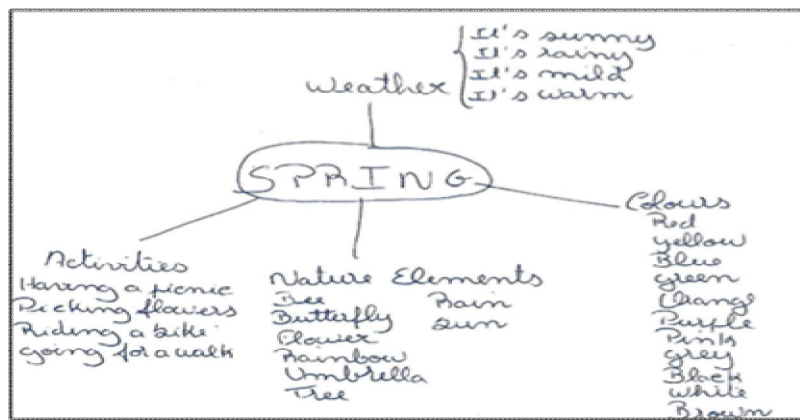 It's sunny
It's rainy
It's mild
It's warm
Weather
SPRING
Activities
Having a picnic
Picking flowers
Riding a bike
going for a walk
Nature Elements
Bee
Butterfly
Flower
Rainbow
Umbrella
Tree
Rain
Sun
Colours
Red
yellow
Blue
green
Orange
Purple
Pink
grey
Black
white
Brown